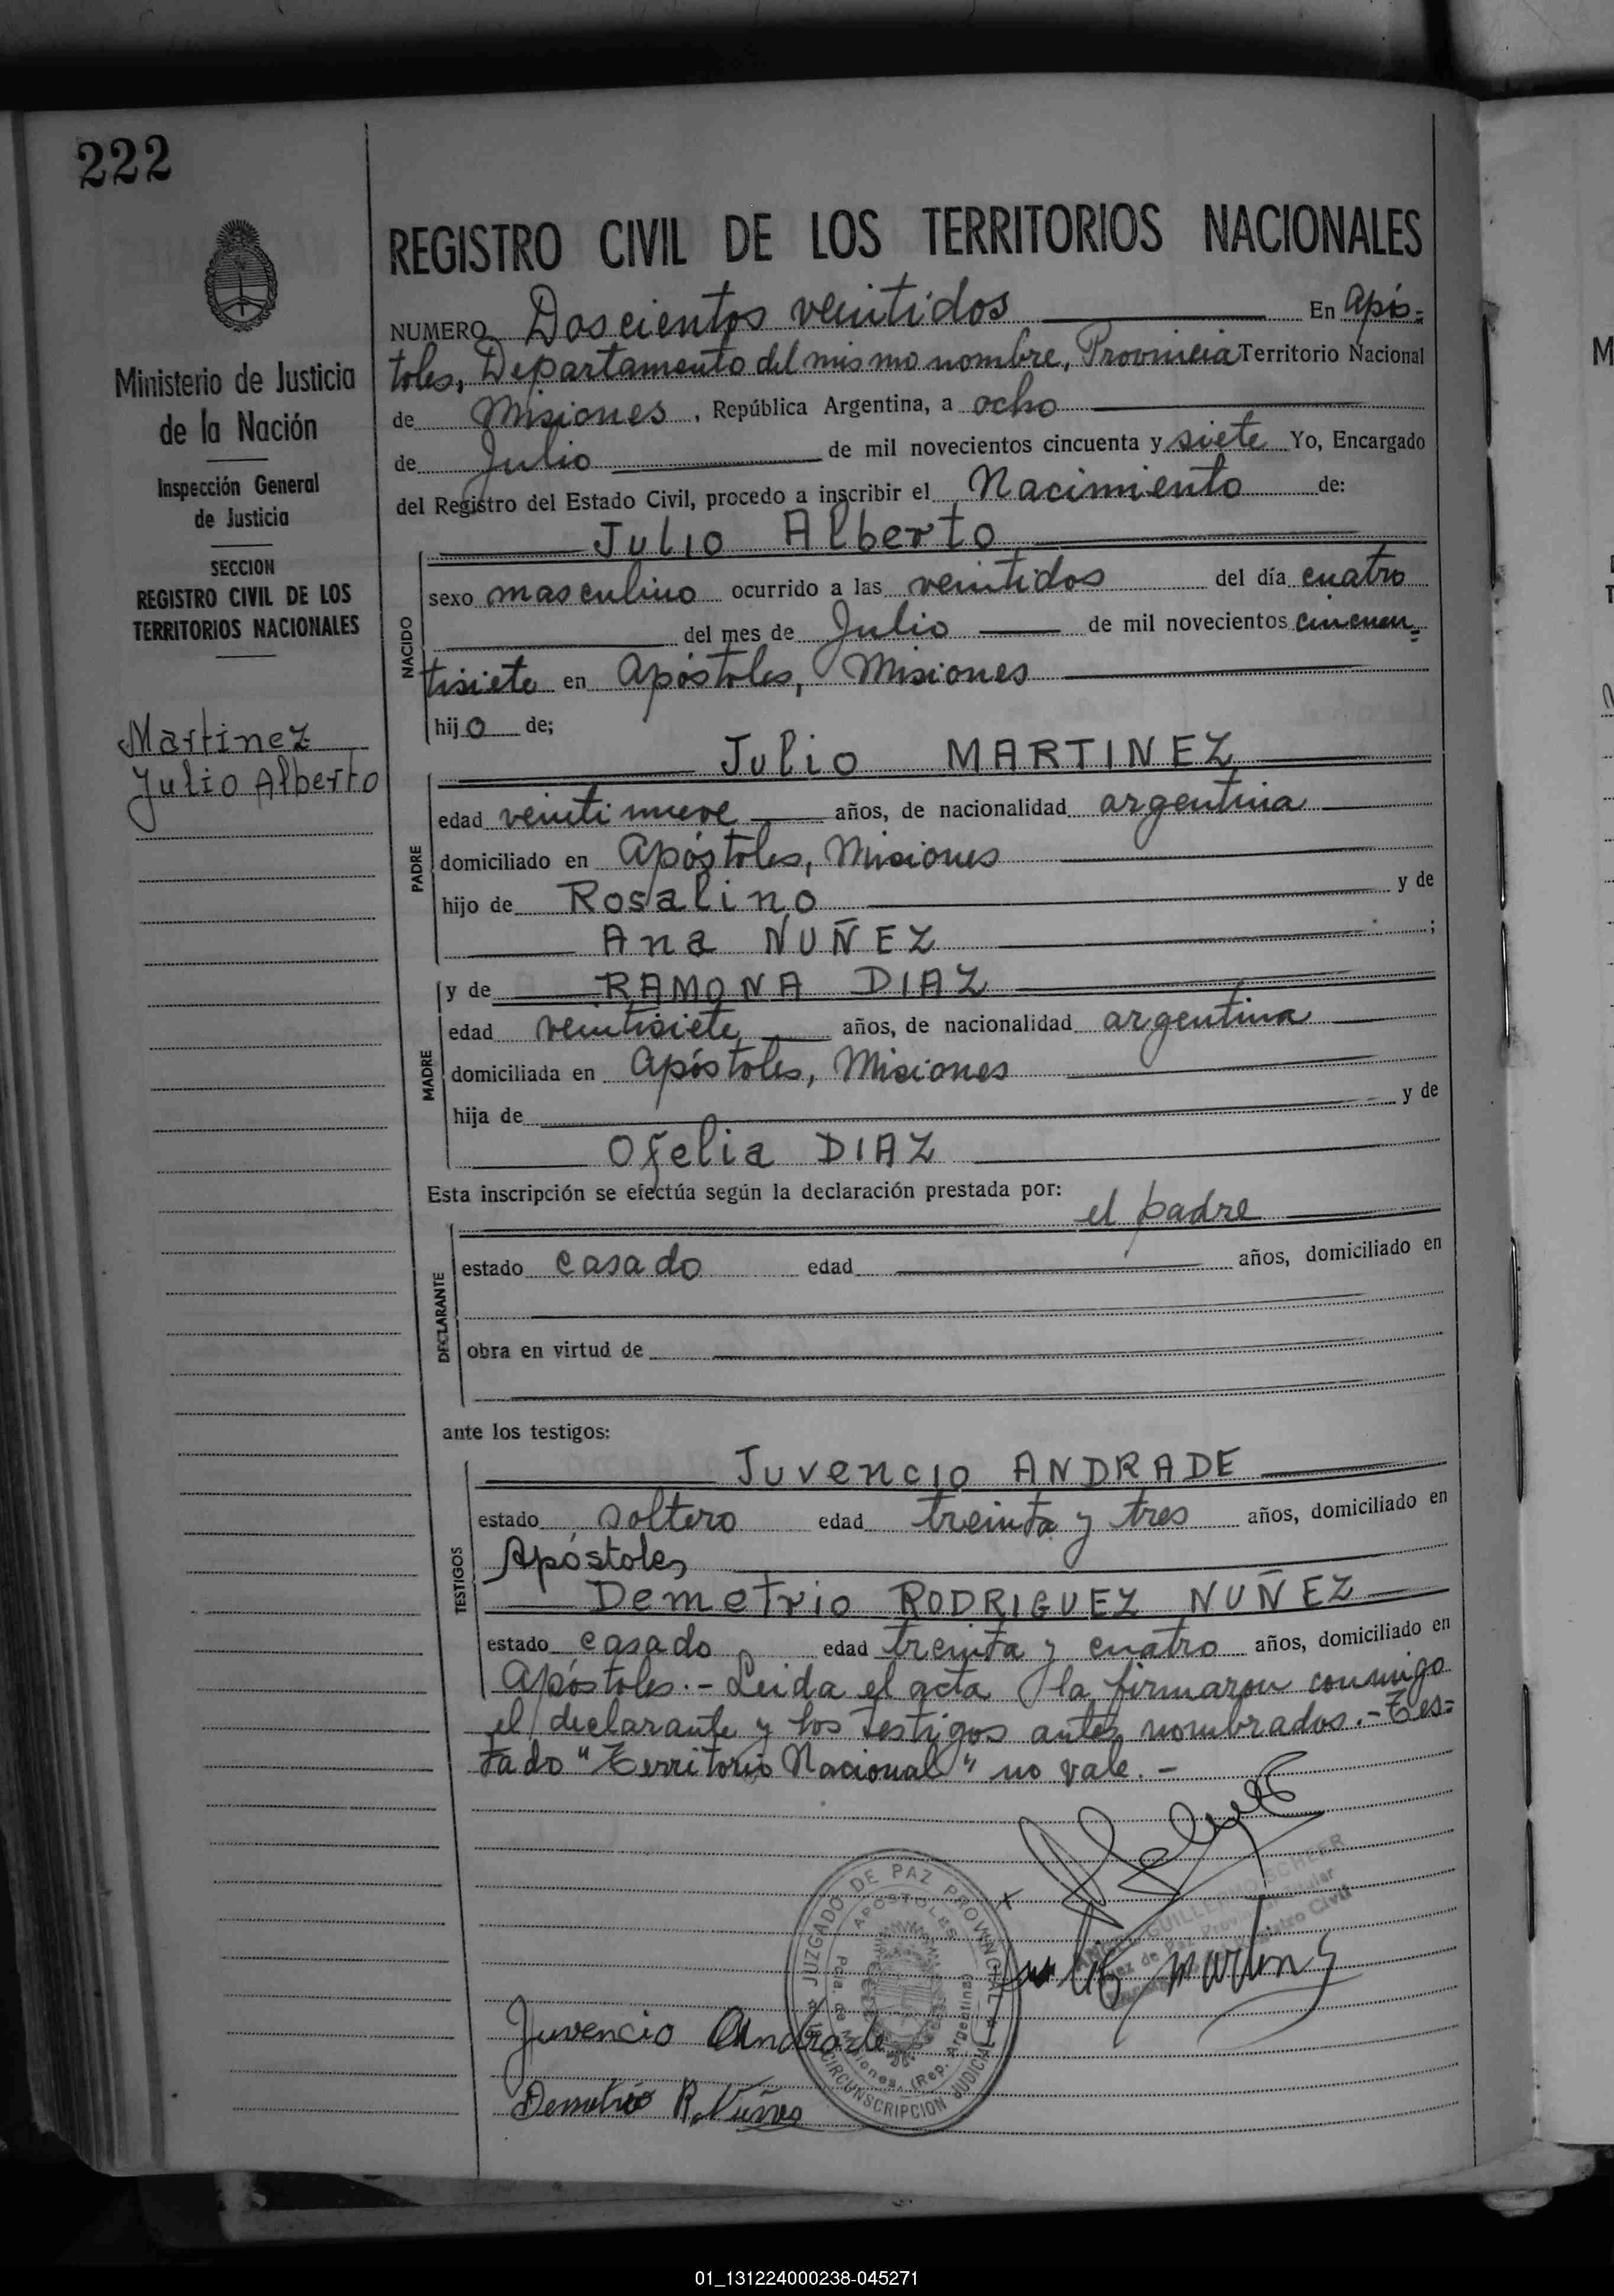 222
REGISTRO CIVIL DE LOS TERRITORIOS NACIONALES
NUMERO Doscientos veintidos En Após=
toles, Departamento del mismo nombre, Provincia Territorio Nacional
de Misiones, República Argentina, a ocho
de Julio de mil novecientos cincuenta y siete Yo, Encargado
del Registro del Estado Civil, procedo a inscribir el Nacimiento de:
Ministerio de Justicia
de la Nación
Inspección General
de Justicia
SECCION
REGISTRO CIVIL DE LOS
TERRITORIOS NACIONALES
Martinez
Julio Alberto
NACIDO
Julio Alberto
sexo masculino ocurrido a las veintidos del día cuatro
del mes de Julio de mil novecientos cincuen=
tisiete en Apóstoles, Misiones
hijo de;
PADRE
Julio MARTINEZ
edad veintinueve años, de nacionalidad argentina
domiciliado en Apóstoles, Misiones
hijo de Rosalino y de
Ana NUÑEZ ;
MADRE
y de RAMONA DIAZ
edad veintisiete años, de nacionalidad argentina
domiciliada en Apóstoles, Misiones
hija de y de
Ofelia DIAZ
Esta inscripción se efectúa según la declaración prestada por:
DECLARANTE
el padre
estado casado edad años, domiciliado en
obra en virtud de
ante los testigos:
TESTIGOS
Juvencio ANDRADE
estado soltero edad treinta y tres años, domiciliado en
Apóstoles
Demetrio RODRIGUEZ NUÑEZ
estado casado edad treinta y cuatro años, domiciliado en
Apóstoles.- Leida el acta la firmaron conmigo
el declarante y los testigos antes nombrados.- Tes=
tado "Territorio Nacional" no vale.-
JUZGADO DE PAZ PROVINCIAL
APOSTOLES
Pcia. de Misiones, (Rep. Argentina)
CIRCUNSCRIPCION JUDICIAL
GUILLERMO SCHEER
Juez de Paz Provincial Titular
Registro Civil
Julio Martinez
Juvencio Andrade
Demetrio R. Nuñez
01_131224000238-045271